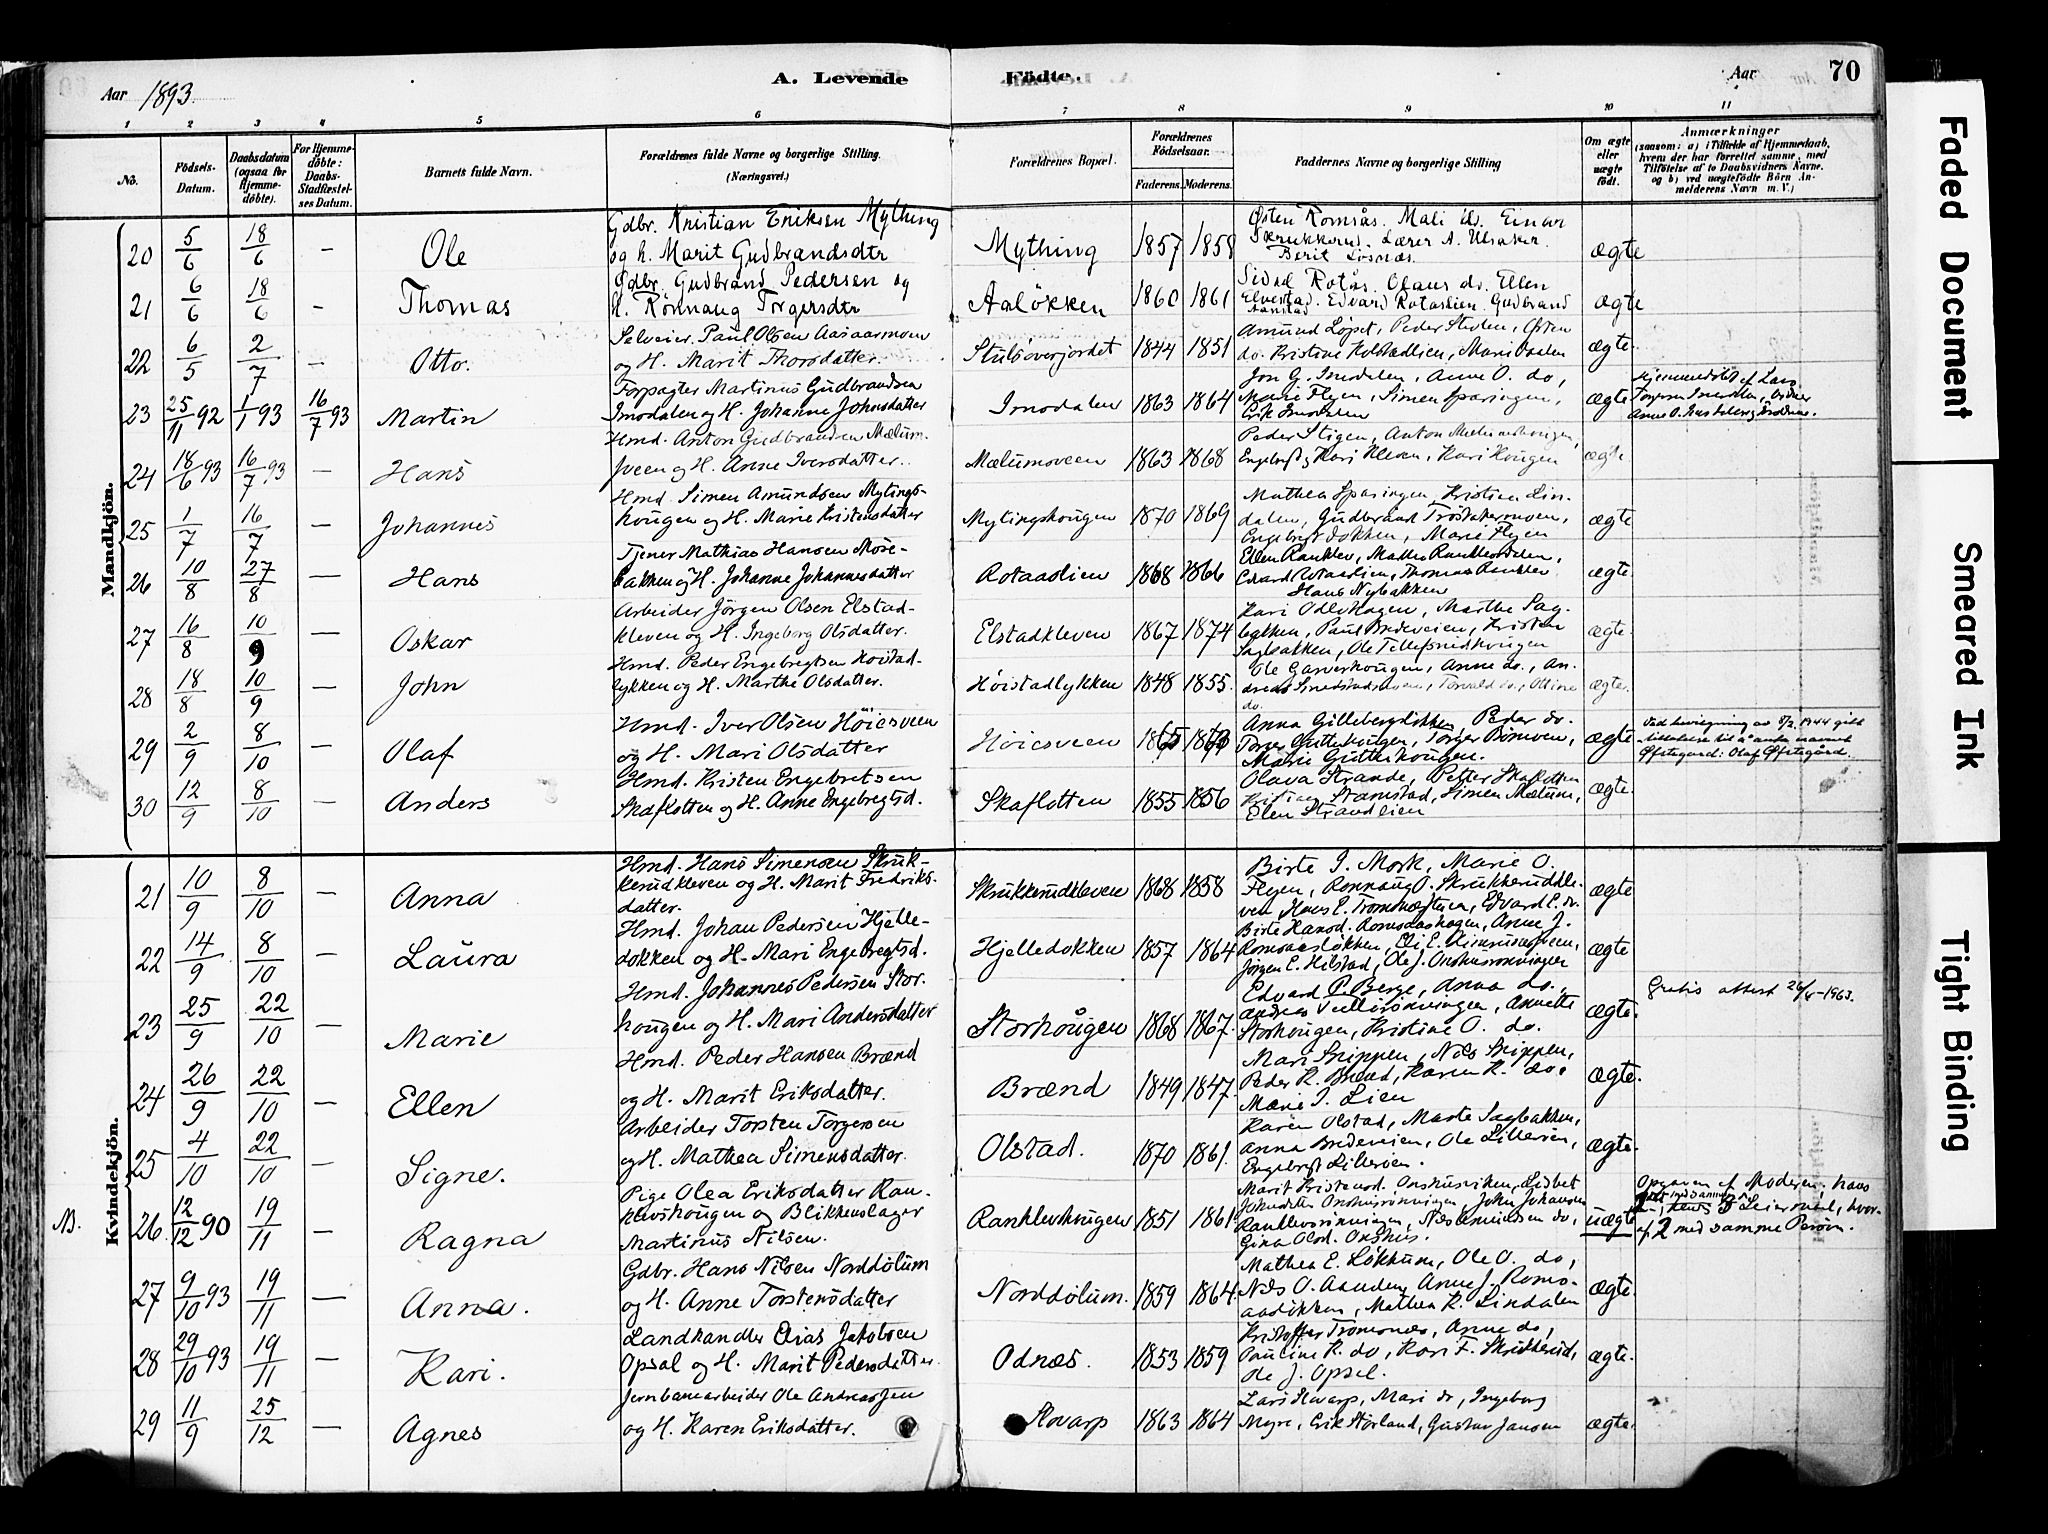 Aar 1893.
A. Levende Födte.
Aar 70
1 2 3 4 5 6 7 8 9 10 11
No.
Födsels-Datum.
Daabsdatum (ogsaa for Hjemme-döbte).
For Hjemme-döbte: Daabs-Stadfæstel-ses Datum.
Barnets fulde Navn.
Forældrenes fulde Navne og borgerlige Stilling. (Næringsvei.)
Forældrenes Bopæl.
Forældrenes Födselsaar.
Faderens. Moderens.
Faddernes Navne og borgerlige Stilling
Om ægte eller uægte födt.
Anmærkninger
(saasom: a) i Tilfælde af Hjemmedaab,
hvem der har forrettet samme, med
Tilföielse af to Daabsvidners Navne.
og b) ved uægtefödte Börn An-
melderens Navn m. V.)
Mandkjön.
20 5/6 18/6 — Ole
Gdbr. Kristian Eriksen Mything
og h. Marit Gudbrandsdtr
Mything 1857 1858
Østen Romsås. Mali do. Einar
Skrukkerud. Lærer A. Ulsaker.
Berit Losnæs.
ægte
21 6/6 18/6 - Thomas
Gdbr. Gudbrand Pedersen og
H. Rönnaug Torgersdtr
Aalökken 1860 1861
Rotås. Olaus do. Ellen
Elvestad. Edvard Rotaslien. Gudbrand
Aanstad
ægte
22 6/5 2/7 - Otto.
Selveier Paul Olsen Aasaarmoen
og H. Marit Thorsdatter.
Stulsöverjordet 1844 1851
Amund Löpet, Peder Stulen, Østen
do. Kristine Kolstadlien, Marie
ægte.
23 25/11 92 1/1 93 16/7 93 Martin
Forpagter Martinus Gudbrandsen
Imsdalen og H. Johanne Johnsdatter
Imsdalen 1863 1864
Jon G. Imsdalen, Anne O. do,
Marie Flyen, Simen Sparingen,
Erik Imsdalen
ægte
Hjemmedöbt af Lars
24 18/6 93 16/7 93 — Hans
Hmd. Anton Gudbrandsen Mælum-
sveen og H. Anne Iversdatter.
Mælumsveen 1863 1868
Peder Stigen, Anton Mælumshougen,
Engebregt og Kari Kleven, Kari Hougen
ægte
25 1/7 16/7 — Johannes
Hmd. Simen Amundsen Mytings-
hougen og H. Marie Kristensdatter
Mytingshougen 1870 1869
Mathea Sparingen, Kristian Lin-
dalen, Gudbrand Trostakermoen,
Engebregt Dokken, Marie Flyen
ægte
26 10/8 27/8 — Hans
Tjener Mathias Hansen Mose-
bakken og H. Johanne Johannesdatter
Rotaaslien 1868 1866
Ellen Ranklev, Mathis
Edvard Rotaaslien, Thomas Ranklev
Hans Nybakken
ægte.
27 16/8 10/9 — Oskar
Arbeider Jörgen Olsen Elstad-
kleven og H. Ingeborg Olsdatter.
Elstadkleven 1867 1874
Kari Odlohagen, Marthe Sag-
bakken, Paul Bredeveien, Kristen
Sagbakken, Ole
ægte.
28 18/8 10/9 — John
Hmd. Peder Engebregtsen Höistad-
lykken og H. Marthe Olsdatter.
Höistadlykken 1848 1855.
Ole Garverhougen, Anne do., An-
dreas Torvald do., Ottine
do.
ægte.
29 2/9 8/10 — Olaf
Hmd. Iver Olsen Höiesveen
og H. Mari Olsdatter
Höiesveen 1865 1863
Anna Gillebergdokken, Peder do.
Torger Bömoen,
Marie Guttihougen.
ægte
Ved bevilgning av 8/2 1944 gitt
tillatelse til å anta navnet
Øfstegård: Olaf Øfstegård.
30 12/9 8/10 — Anders
Hmd. Kristen Engebretsen
Skaflotten og H. Anne Engebregtsd.
Skaflotten 1855 1856
Olava Strande, Petter Skaflotten
Kristian Stamstad, Simen Mælum,
Elen Strandlien
ægte.
Kvindekjön.
21 10/9 8/10 — Anna
Hmd. Hans Simensen Skruk-
kerudkleven og H. Marit Fredriks-
datter.
Skrukkerudkleven 1868 1858
Birte J. Mork, Marie O.
Flyen, Rönnaug O. Skrukkerudkle-
ven Hans E. Edvard E. do.
ægte
22 14/9 8/10 — Laura
Hmd. Johan Pedersen Hjelle-
dokken og H. Mari Engebregtsd.
Hjelledokken 1857 1864
Birte Hansd. Romsdashagen, Anne J.
Romsaaslökken, Eli E.
Jörgen E. Hilstad, Ole J.
ægte
23 25/9 22/10 — Marie
Hmd. Johannes Pedersen Stor-
hougen og H. Mari Andersdatter
Storhougen 1868 1867.
Edvard P. Berge, Anna do.,
Andreas Annette
Storhougen, Kristine O. do.
ægte.
Gratis attest 26/4-1963.
24 26/9 22/10 — Ellen
Hmd. Peder Hansen Brænd
og H. Marit Eriksdatter.
Brænd 1849 1847.
Mari Snippen, Nils Snippen,
Peder R. Brænd, Karen R. do,
Marie J. Lien
ægte.
25 4/10 22/10 — Signe.
Arbeider Torsten Torgersen
og H. Mathea Simensdatter.
Olstad. 1870 1861.
Karen Olstad, Marte Sagbakken,
Anna Bredeveien, Ole Lilleröen,
Engebregt Lilleröen.
ægte.
NB. 26. 12/12 90 19/11 — Ragna
Pige Olea Eriksdatter Ran-
klevshougen og Blikkenslager
Martinus Nilsen.
Ranklevhougen 1851 1861.
Marit Kristensd. Onshusviken, Lisbet
Johnsdatter John Johansen
Ranklevsrönningen, Nils Amundsen do,
Gina Olsd. Onshus.
uægte
Opgaven af Moderen; hans
5 Leiermaal, hvor-
af 2 med samme Person.
27 9/10 93 19/11 — Anna.
Gdbr. Hans Nilsen Norddölum
og H. Anne Torstensdatter
Norddölum. 1859 1864.
Mathea E. Lökkum, Ole O. do,
Nils O. Aanden, Anne J. Roms-
aasdokken, Mathea K. Lindalen
ægte.
28 29/10 93 19/11 — Kari.
Landhandler Elias Jakobsen
Opsal og H. Marit Pedersdatter.
Odnæs. 1853 1859
Kristoffer Tromsnæs, Anne do,
Pauline K. do, Kari F. Skrukkerud,
Ole J. Opsal.
ægte.
29 11/9 25/12 — Agnes
Jernbanearbeider Ole Andreassen
og H. Karen Eriksdatter.
Skvarp 1863 1864
Lars Skvarp, Mari do, Ingeborg
Myre, Erik Störland, Gustav Jansen
ægte.
Faded Document
Smeared Ink
Tight Binding